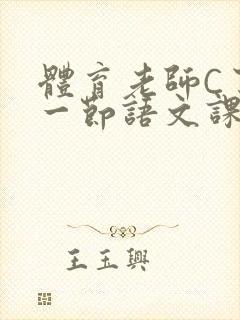 體育老師C
一節語文課
王玉興